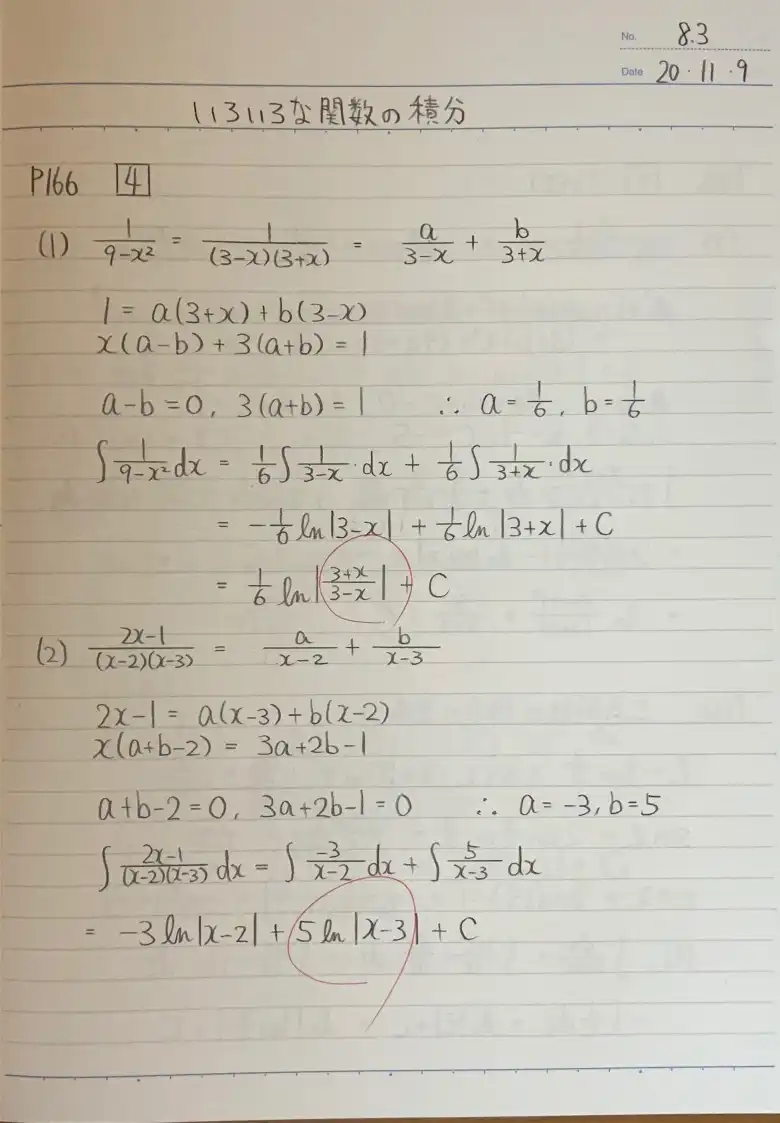 No. 8.3
Date 20・11・9
いろいろな関数の積分
P166 4
(1) 1/(9-x²) = 1/((3-x)(3+x)) = a/(3-x) + b/(3+x)
1 = a(3+x) + b(3-x)
x(a-b) + 3(a+b) = 1
a-b = 0, 3(a+b) = 1 ∴ a = 1/6, b = 1/6
∫ 1/(9-x²) dx = 1/6 ∫ 1/(3-x)・dx + 1/6 ∫ 1/(3+x)・dx
= -1/6 ln|3-x| + 1/6 ln|3+x| + C
= 1/6 ln|(3+x)/(3-x)| + C
(2) (2x-1)/((x-2)(x-3)) = a/(x-2) + b/(x-3)
2x-1 = a(x-3) + b(x-2)
x(a+b-2) = 3a+2b-1
a+b-2 = 0, 3a+2b-1 = 0 ∴ a = -3, b = 5
∫ (2x-1)/((x-2)(x-3)) dx = ∫ -3/(x-2) dx + ∫ 5/(x-3) dx
= -3 ln|x-2| + 5 ln|x-3| + C